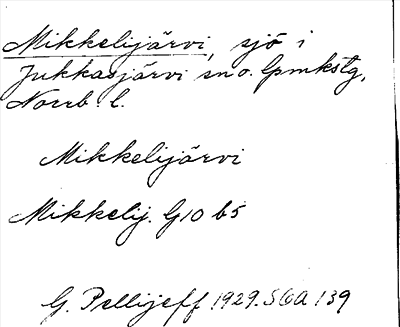 Mikkelijärvi, sjö i
Jukkasjärvi sn o. lpmkstg,
Norrb. l.
Mikkelijärvi
Mikkelij. G10 b5
G. Pellijeff 1929. SOA 139